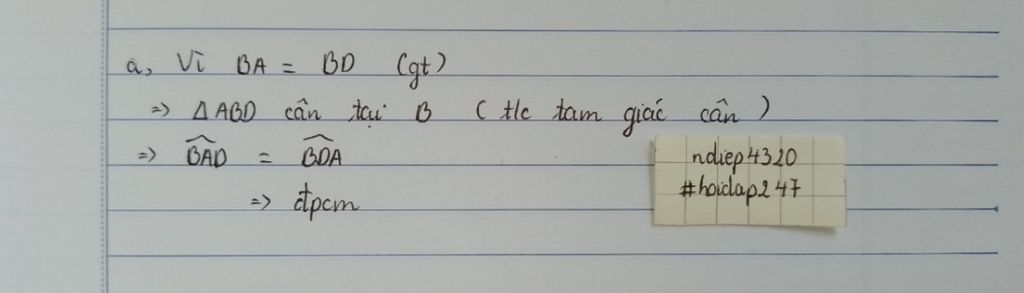 a, Vì BA = BD (gt)
=> ΔABD cân tại B (t/c tam giác cân)
=> \widehat{BAD} = \widehat{BDA}
=> đpcm
ndiep4320
#hoidap247